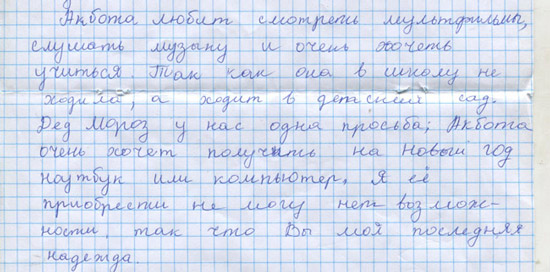 Акбота любит смотреть мультфильмы,
слушать музыку и очень хочеть
учиться. Так как она в школу не
ходила, а ходит в детский сад.
Дед Мороз у нас одна просьба; Акбота
очень хочет получить на Новый год
ноутбук или компьютер. Я её
приобрести не могу нет возмож-
ности. так что Вы моя последняя
надежда.